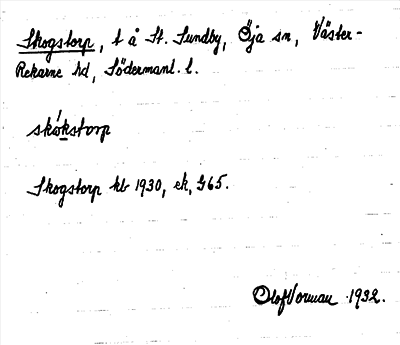 Skogstorp, t å St. Sundby, Öja sn, Väster-
Rekarne hd, Södermanl. l.
skókstorp
Skogstorp kb 1930, ek, G65.
Olof Vorman 1932.